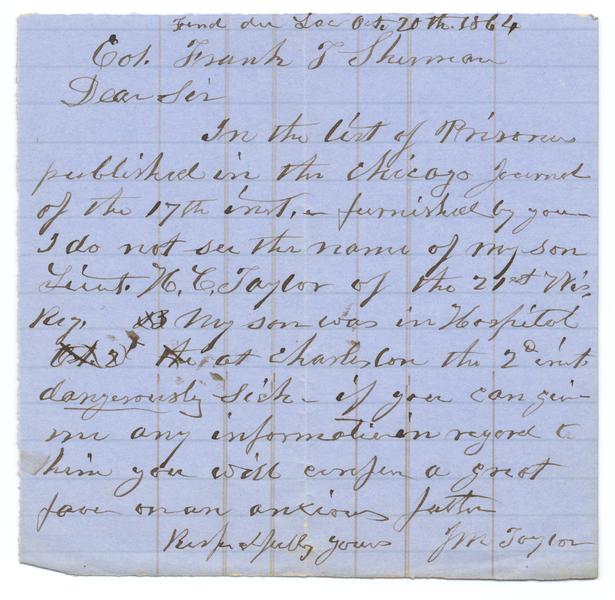 Fond du Lac Oct. 20th. 1864
Col. Frank T Sherman
Dear Sir
In the list of Prisoners
published in the Chicago Journal
of the 17th inst. - furnished by you -
I do not see the name of my son
Lieut. H. C. Taylor of the 21st Wis-
Reg. My son was in Hospital
at Charleston the 2d inst
dangerously sick - if you can give
me any information in regard to
him you will confer a great
favor on an anxious father
Respectfully yours J M Taylor